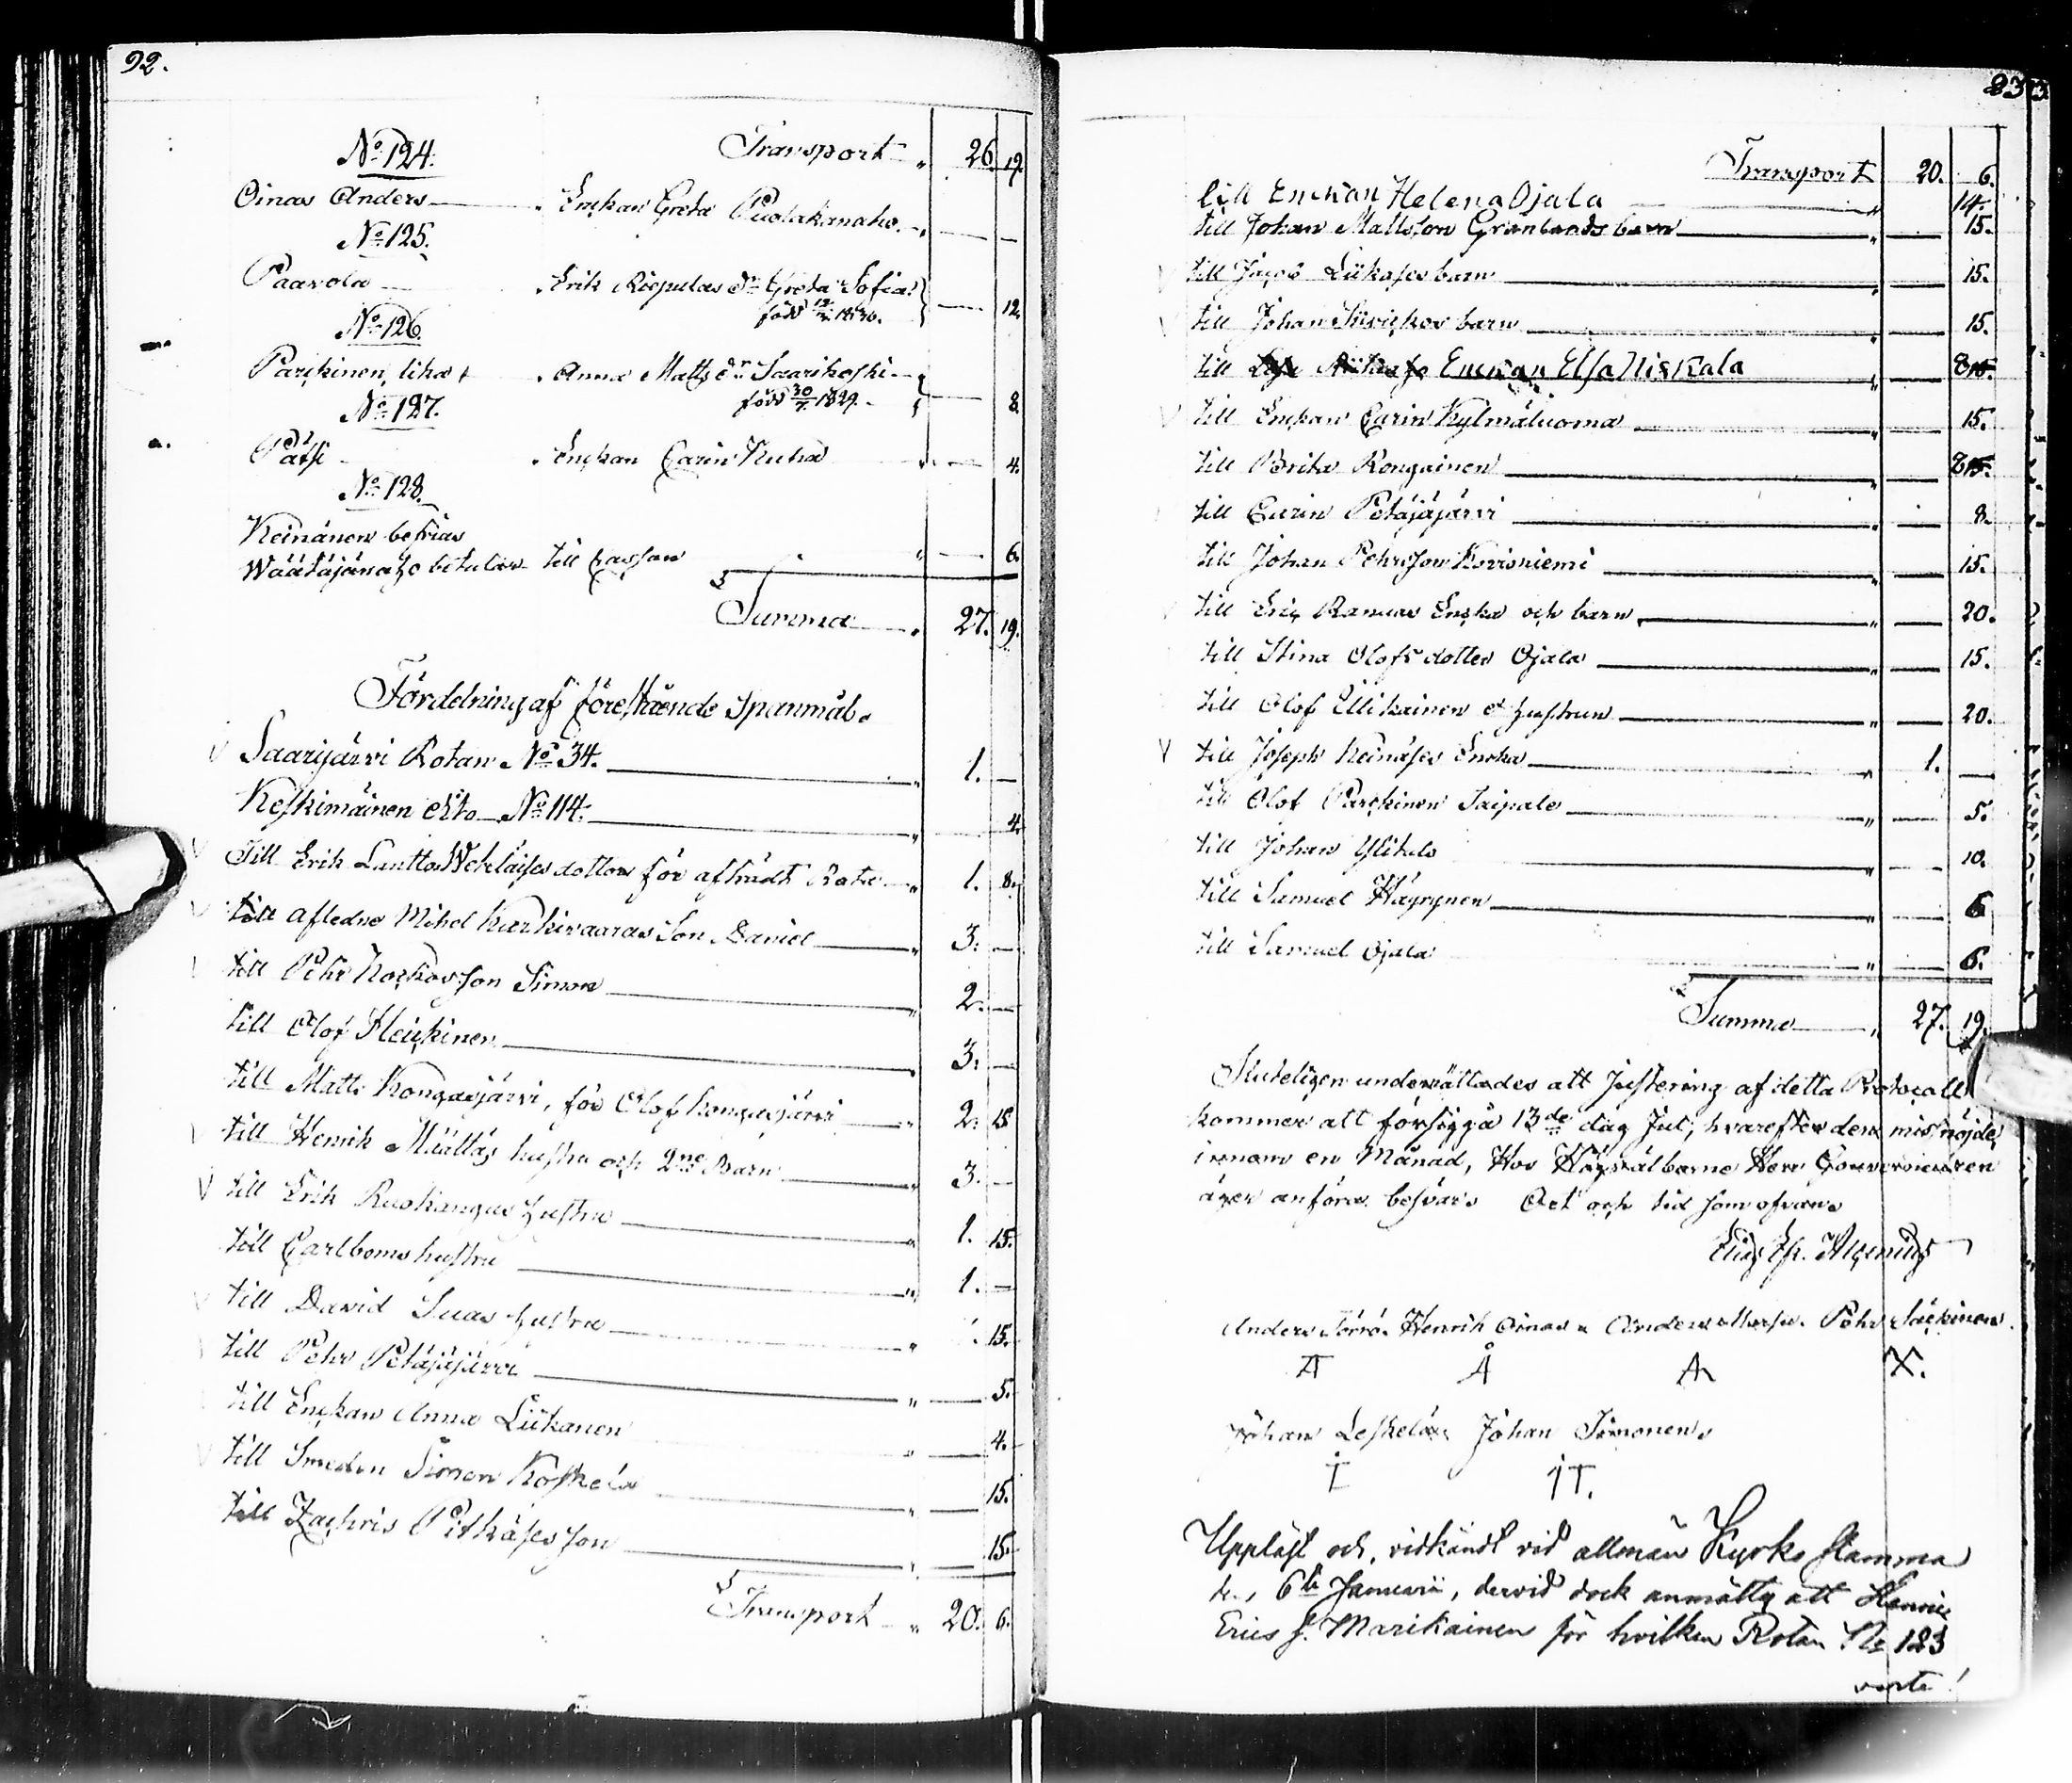 92.
No 124. Transport „ 26. 19.
Oinas Anders — Enkan Greta Puolakanaho. „ — —
No 125.
Paavola — Erik Riepulas dr Greta Sofia. — 12.
född 1836.
No 126.
Parkinen, lika, Anna Matts dr Saarikoski — 8.
född 30/7 1829.
No 127.
Pätsi — Enkan Carin Kuha „ — 4.
No 128.
Keinänen befrias
Wäätäjänaho betalar till Cassan „ — 6.
Summa — „ 27. 19.
Fördelning af föreståënde Spanmål.
Saarijärvi Rotan No 34. — „ 1. —
Keskimäinen dito No 114. — „ 4.
Till Erik Lantto Wehkläises dotter för afträdt Rote — „ 1. 8.
till afledne Mihel Karhivaaras Son Daniel — „ 3. —
till Pehr Kockos Son Simon — „ 2. —
till Olof Heikinen — „ 3. —
till Matts Kongasjärvi, för Olof Kongasjärvi — „ 2. 15
till Henrik Määttäs hustru och 2ne Barn — „ 3. —
till Erik Ruokangas hustru — „ 1. 15.
till Carlboms hustru — „ 1. —
till David Suas hustru — „ 15.
till Pehr Petäjäjärvi — „ — 5.
till Enkan Anna Liikanen „ — 4.
till Smeden Simon Koskela „ — 15.
till Zachris Pitkäses son — „ — 15.
Transport — „ 20. 6.
93
Transport 20. 6.
till Enckan Helena Ojala — „ 14.
till Johan Mattsson Granlunds barn — „ — 15.
till Jacob Liikases barn — „ — 15.
till Johan barn — „ — 15.
till Enckan Elsa Niskala „ — 8
till Enkan Carin Kylmäluoma — „ — 15.
till Brita Rongainen — „ — 8
till Carin Petäjäjärvi — „ — 8.
till Johan Pehrsson Korvisniemi — „ — 15.
till Eric Ranuas Enka och barn — „ — 20.
till Stina Olofsdotter Ojala — „ — 15.
till Olof Illikainen & hustrun — „ — 20.
till Joseph Keinäses Enka — „ 1. —
till Olof Parckinen Taipale — „ — 5.
till Johan Ylitalo „ — 10.
till Samuel Häyrynen — „ — 6
till Samuel Ojala „ — 6.
Summa — „ 27. 19.
Sluteligen underrättades att Justering af detta Protocoll
kommer att försiggå 13de dag Jul, hvarefter den misnöjde,
innom en Månad, Hos Högvälborne Herr Gouverneuren
äger anföra besvär. Ort och tid som ofvan.
Elias Alcenius
Anders Törrö. Henrik Oinas. Anders Pehr Säckinen.
A Å A X.
Johan Leskelä. Johan Simonen.
I IT.
Uppläst och, vidkändt vid allmän Kyrko stämma
d. 6te Januarii, dervid dock anmältes att Henric
Erics s. Marikainen för hvilken Rotan No 123
verte!